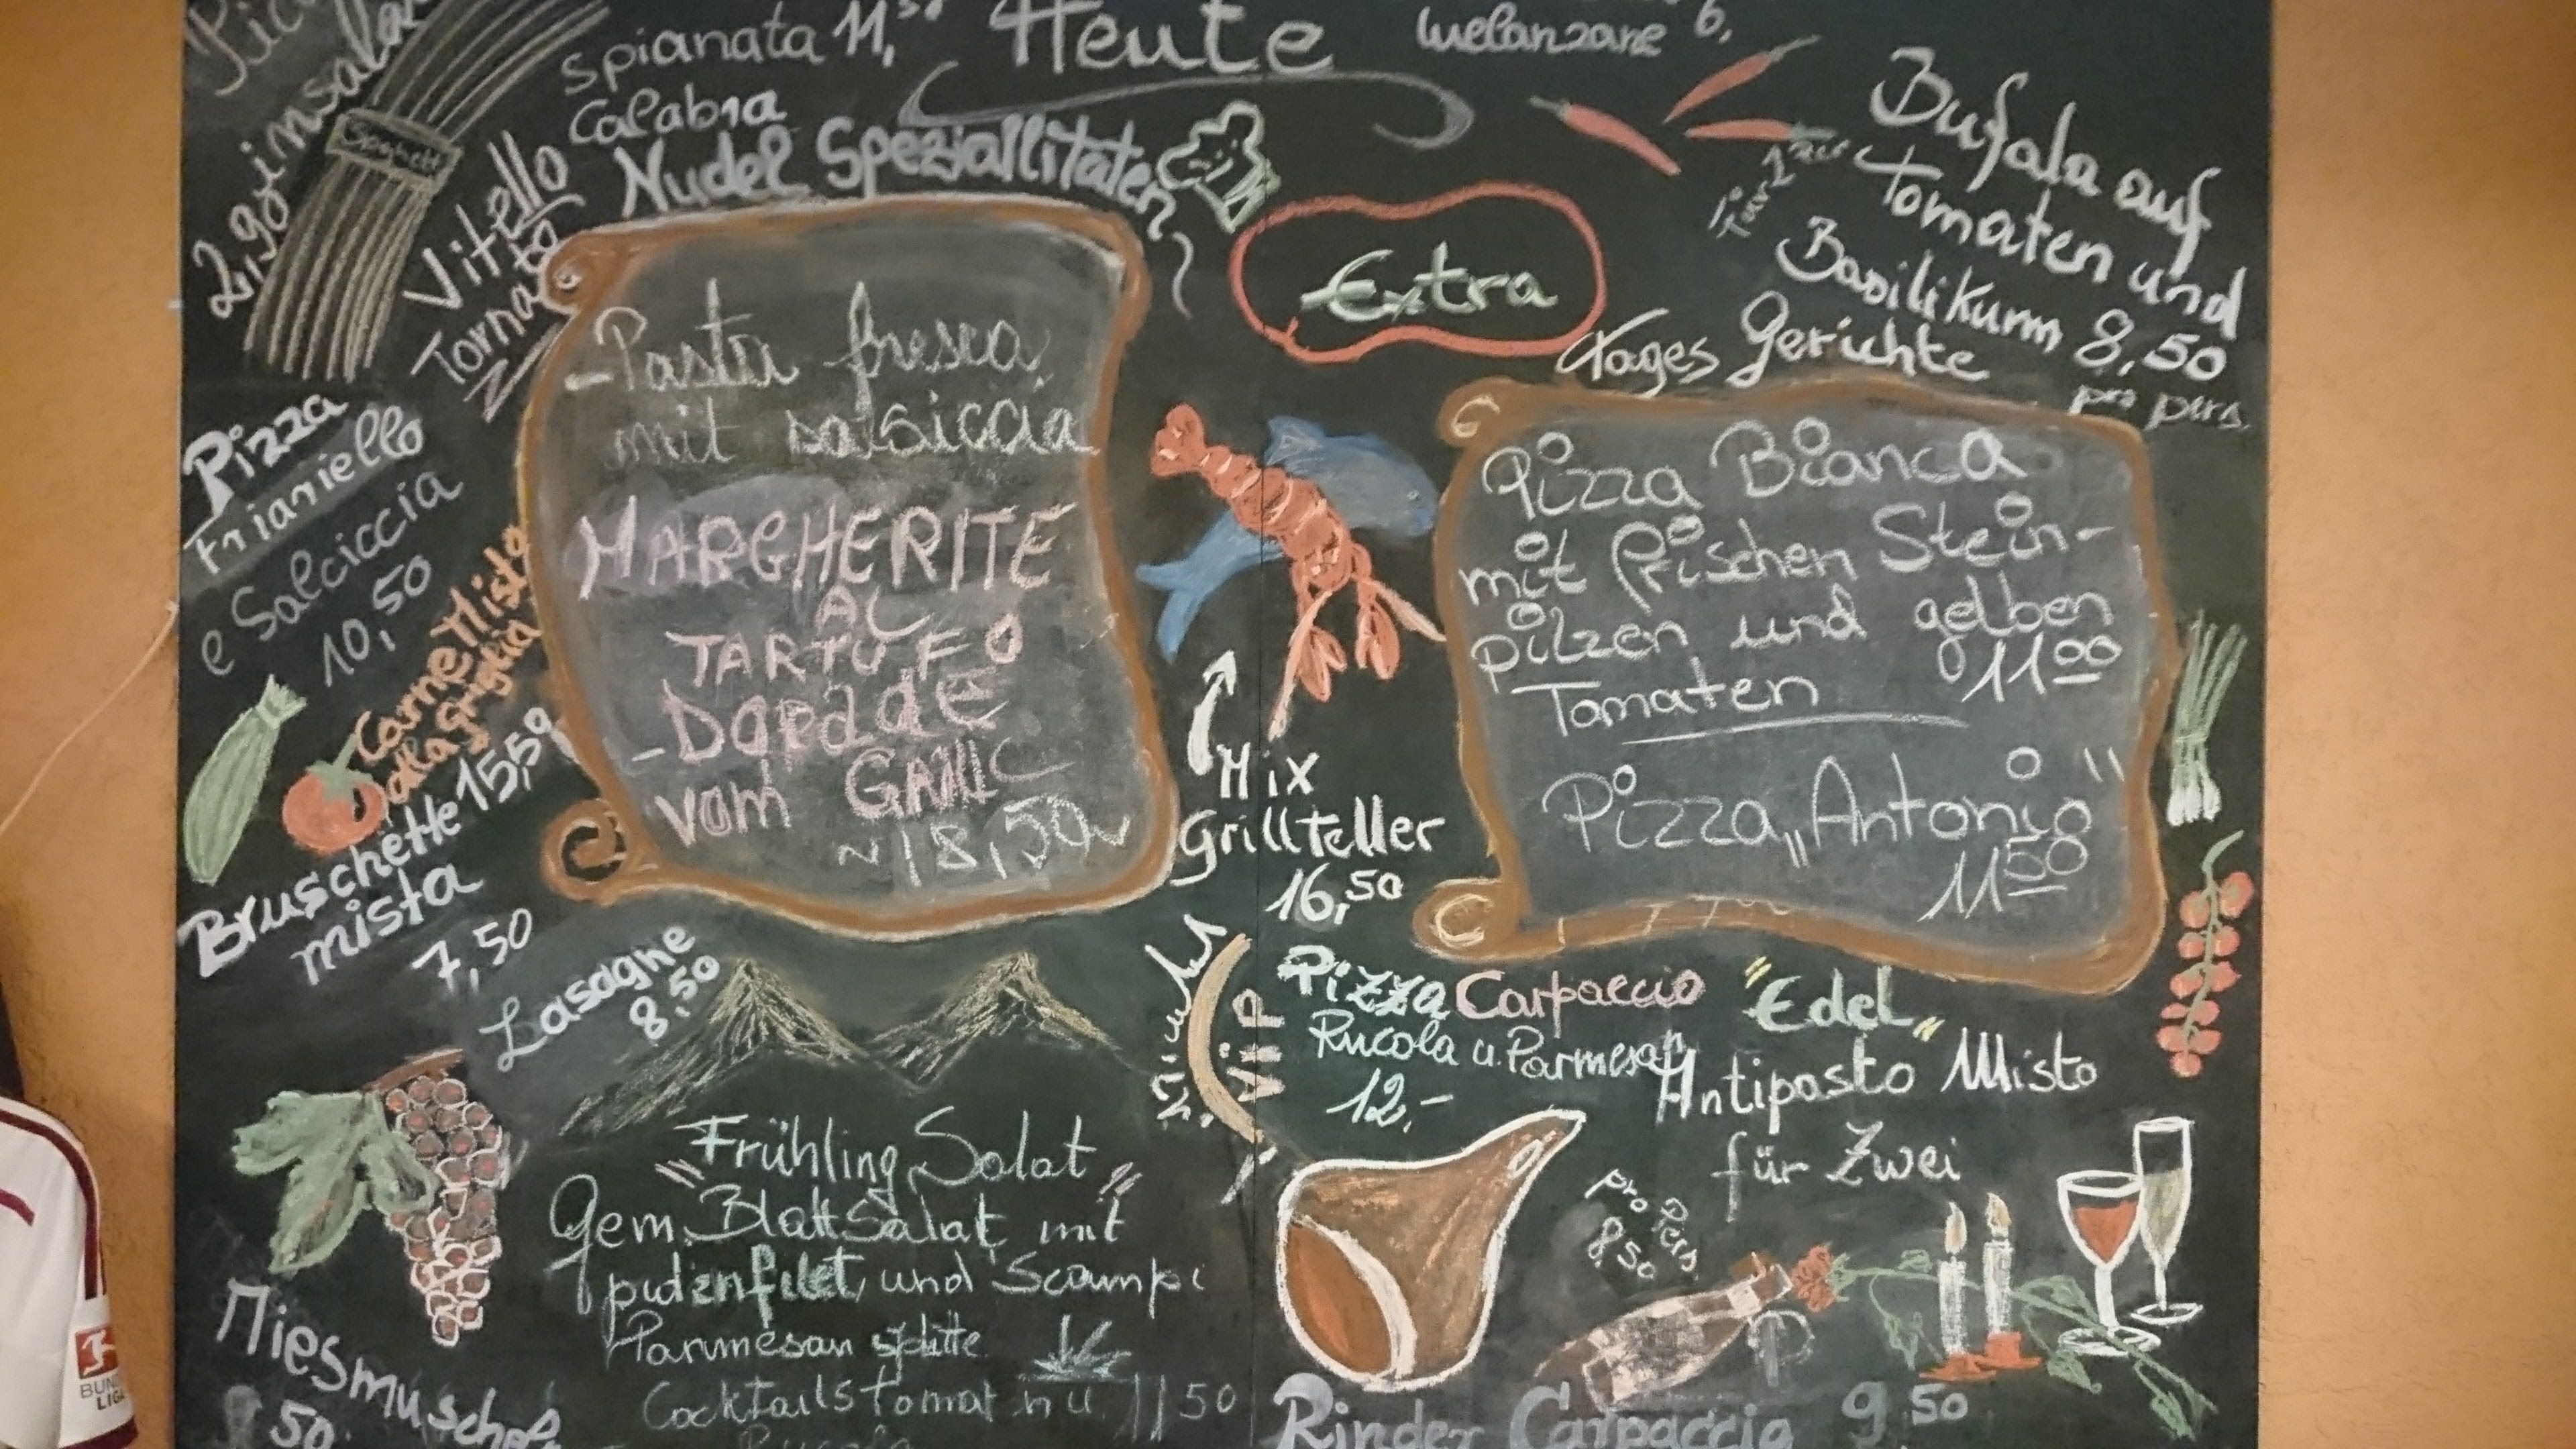 Spianata 11,50
Calabra
Heute
melanzane 6,
Nudel Speziallitäten
Spaghetti
Vitello
Tornato
Pizza
Friariello
e Salciccia
10,50
Carne Misto
alla griglia
15,50
Bruschette
mista
7,50
Lasagne
8,50
- Pasta fresca
mit salsiccia
MARGHERITE
AL
TARTUFO
- Dorade
vom GRILL
~18,50~
Extra
Mix
Grillteller
16,50
Bufala auf
Tomaten und
Basilikum 8,50
pro pers.
für 2
Tages Gerichte
Pizza Bianca
mit frischen Stein-
pilzen und gelben
Tomaten 1100
Pizza „Antonio“
1150
ViP
Pizza Carpaccio
Rucola u. Parmesan
12,-
"Edel"
Antipasto Misto
für Zwei
pro Pers.
8,50
"Frühling Salat"
Gem. BlattSalat mit
putenfilet, und Scampi
Parmesan splitte
Cocktailstomat n u. 11 50
Rucola
Miesmuschel
50
Rinder Carpaccio 9 50
BUNDESLIGA